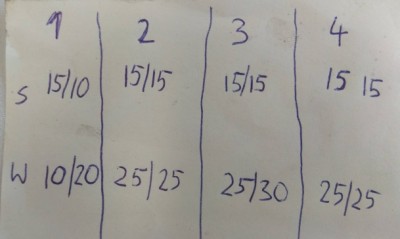 1 2 3 4
S 15/10 15/15 15/15 15 15
W 10/20 25/25 25/30 25/25